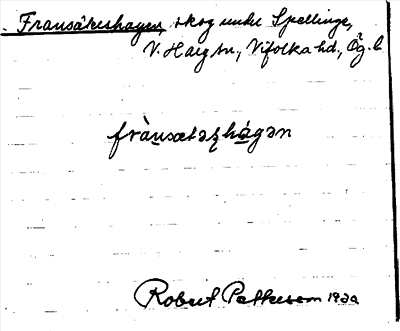 Fransåkershagen, skog under Spellinge,
V. Harg sn, Vifolka hd., Ög. l.
frànsætəʂhágən
Robert Pettersson